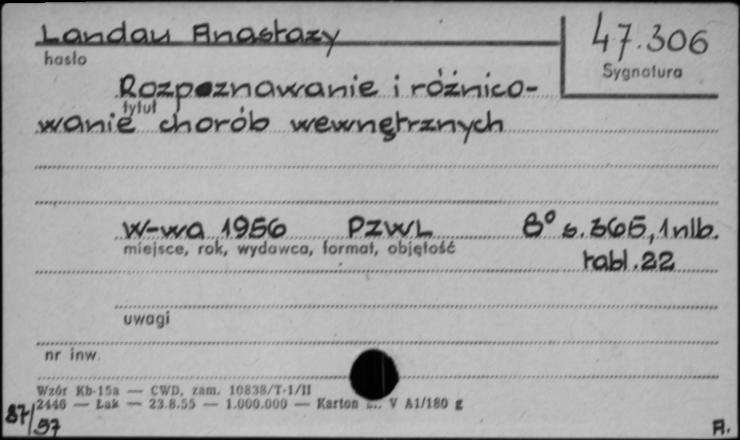 Landau Anastazy
47.306
hasło
Sygnatura
Rozpoznawanie i różnico-
tytuł
wanie chorób wewnętrznych
W-wa 1956 PZWL 8° s. 365, 1 nlb.
miejsce, rok, wydawca, format, objętość
tabl. 22
uwagi
nr inw.
Wzór Kb-15a — CWD, zam. 10838/T-1/II
2446 — Łak — 23.8.55 — 1.000.000 — Karton V A1/180 g
87/57
A.